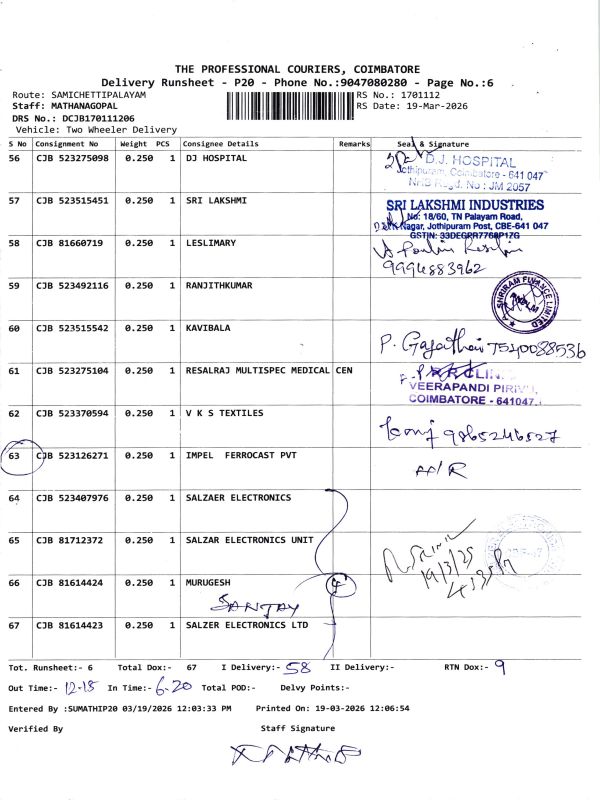 THE PROFESSIONAL COURIERS, COIMBATORE
Delivery Runsheet - P20 - Phone No.:9047080280 - Page No.:6
Route: SAMICHETTIPALAYAM RS No.: 1701112
Staff: MATHANAGOPAL RS Date: 19-Mar-2026
DRS No.: DCJB170111206
Vehicle: Two Wheeler Delivery
S No Consignment No Weight PCS Consignee Details Remarks Seal & Signature
56 CJB 523275098 0.250 1 DJ HOSPITAL
D.J. HOSPITAL
Jothipuram, Coimbatore - 641 047
No : JM 2057
57 CJB 523515451 0.250 1 SRI LAKSHMI
SRI LAKSHMI INDUSTRIES
No: 18/60, TN Palayam Road,
Nagar, Jothipuram Post, CBE-641 047
GSTIN: 33DEGRR7768P1ZG
58 CJB 81660719 0.250 1 LESLIMARY
9994883962
59 CJB 523492116 0.250 1 RANJITHKUMAR
SHRIRAM FINANCE LIMITED
60 CJB 523515542 0.250 1 KAVIBALA
P. Gajathari 7540088536
61 CJB 523275104 0.250 1 RESALRAJ MULTISPEC MEDICAL CEN
VEERAPANDI PIRIVU,
COIMBATORE - 641047.
62 CJB 523370594 0.250 1 V K S TEXTILES
9865246527
63 CJB 523126271 0.250 1 IMPEL FERROCAST PVT
A/R
64 CJB 523407976 0.250 1 SALZAER ELECTRONICS
65 CJB 81712372 0.250 1 SALZAR ELECTRONICS UNIT
66 CJB 81614424 0.250 1 MURUGESH 4
SANJAY
67 CJB 81614423 0.250 1 SALZER ELECTRONICS LTD
Tot. Runsheet:- 6 Total Dox:- 67 I Delivery:- 58 II Delivery:- RTN Dox:- 9
Out Time:- 12-15 In Time:- 6-20 Total POD:- Delvy Points:-
Entered By :SUMATHIP20 03/19/2026 12:03:33 PM Printed On: 19-03-2026 12:06:54
Verified By Staff Signature